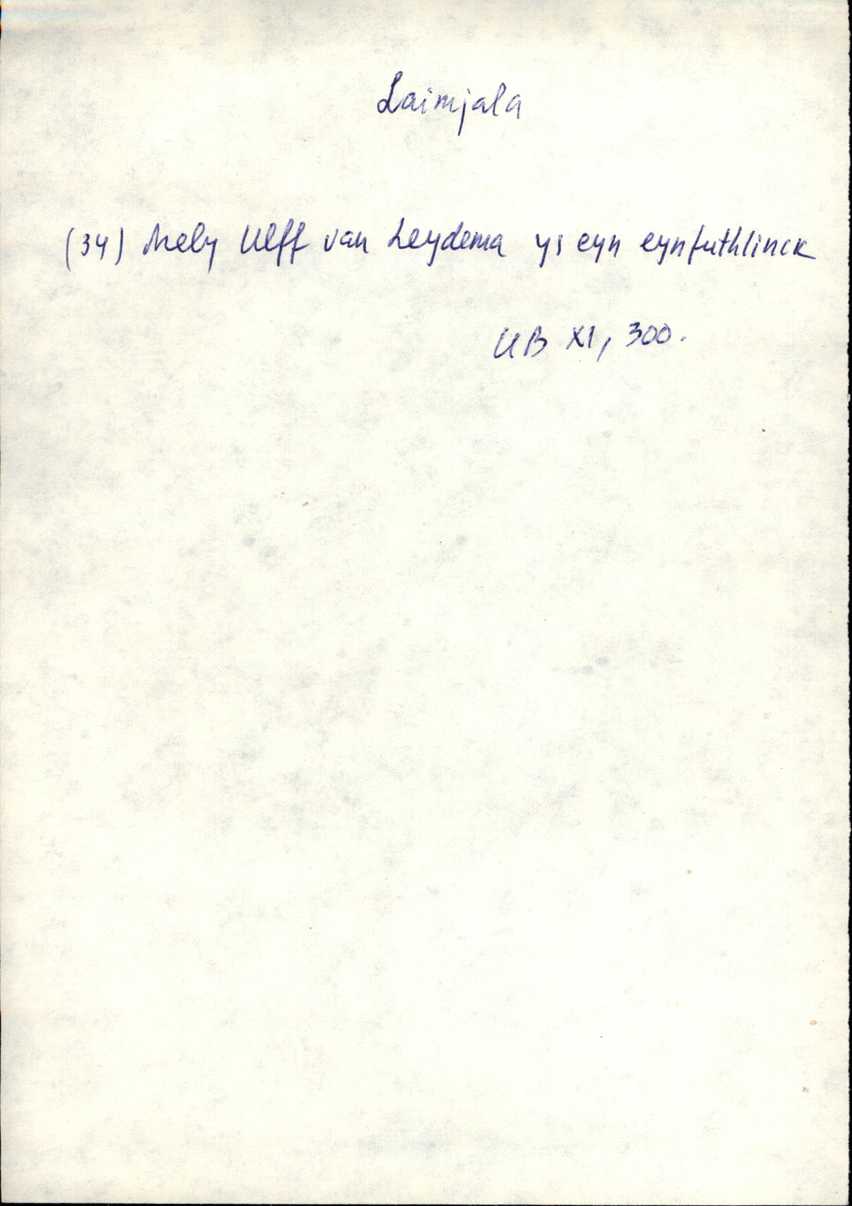 Laimjala
(34) Mely Ulff van Leydema ys eyn eynfuthlinck
UB XI, 300.